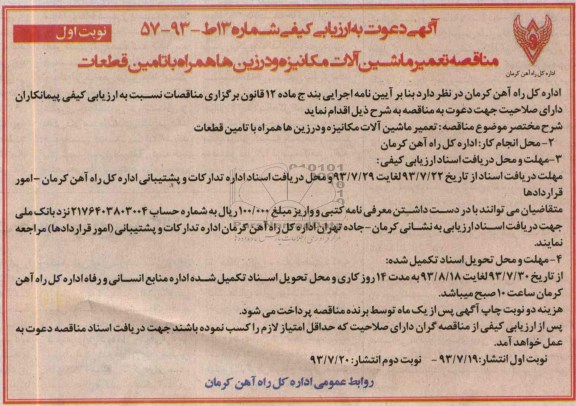 نوبت اول
آگهی دعوت به ارزیابی کیفی شماره ۱۳ط-۹۳-۵۷
مناقصه تعمیر ماشین آلات مکانیزه و درزین ها همراه با تامین قطعات
اداره کل راه آهن کرمان
اداره کل راه آهن کرمان در نظر دارد بنا بر آیین نامه اجرایی بند ج ماده ۱۲ قانون برگزاری مناقصات نسبت به ارزیابی کیفی پیمانکاران
دارای صلاحیت جهت دعوت به مناقصه به شرح ذیل اقدام نماید
شرح مختصر موضوع مناقصه : تعمیر ماشین آلات مکانیزه و درزین ها همراه با تامین قطعات
۲- محل انجام کار: اداره کل راه آهن کرمان
۳-مهلت و محل دریافت اسناد ارزیابی کیفی:
مهلت دریافت اسناد از تاریخ ۹۳/۷/۲۲ لغایت ۹۳/۷/۲۹ و محل دریافت اسناد اداره تدارکات و پشتیبانی اداره کل راه آهن کرمان -امور
قراردادها
متقاضیان می توانند با در دست داشتن معرفی نامه کتبی و واریز مبلغ ۱۰۰/۰۰۰ ریال به شماره حساب ۲۱۷۶۴۰۳۸۰۳۰۰۴ نزد بانک ملی
جهت دریافت اسناد ارزیابی به نشانی کرمان -جاده تهران اداره کل راه آهن کرمان اداره تدارکات و پشتیبانی (امور قراردادها) مراجعه
نمایند.
۴- مهلت و محل تحویل اسناد تکمیل شده:
از تاریخ ۹۳/۷/۳۰ لغایت ۹۳/۸/۱۸ به مدت ۱۴ روز کاری و محل تحویل اسناد تکمیل شده اداره منابع انسانی و رفاه اداره کل راه آهن
کرمان ساعت ۱۰ صبح میباشد.
هزینه دو نوبت چاپ آگهی پس از یک ماه توسط برنده مناقصه پرداخت می شود.
پس از ارزیابی کیفی از مناقصه گران دارای صلاحیت که حداقل امتیاز لازم را کسب نموده باشند جهت دریافت اسناد مناقصه دعوت به
عمل خواهد آمد.
نوبت اول انتشار: ۹۳/۷/۱۹ - نوبت دوم انتشار: ۹۳/۷/۲۰
روابط عمومی اداره کل راه آهن کرمان